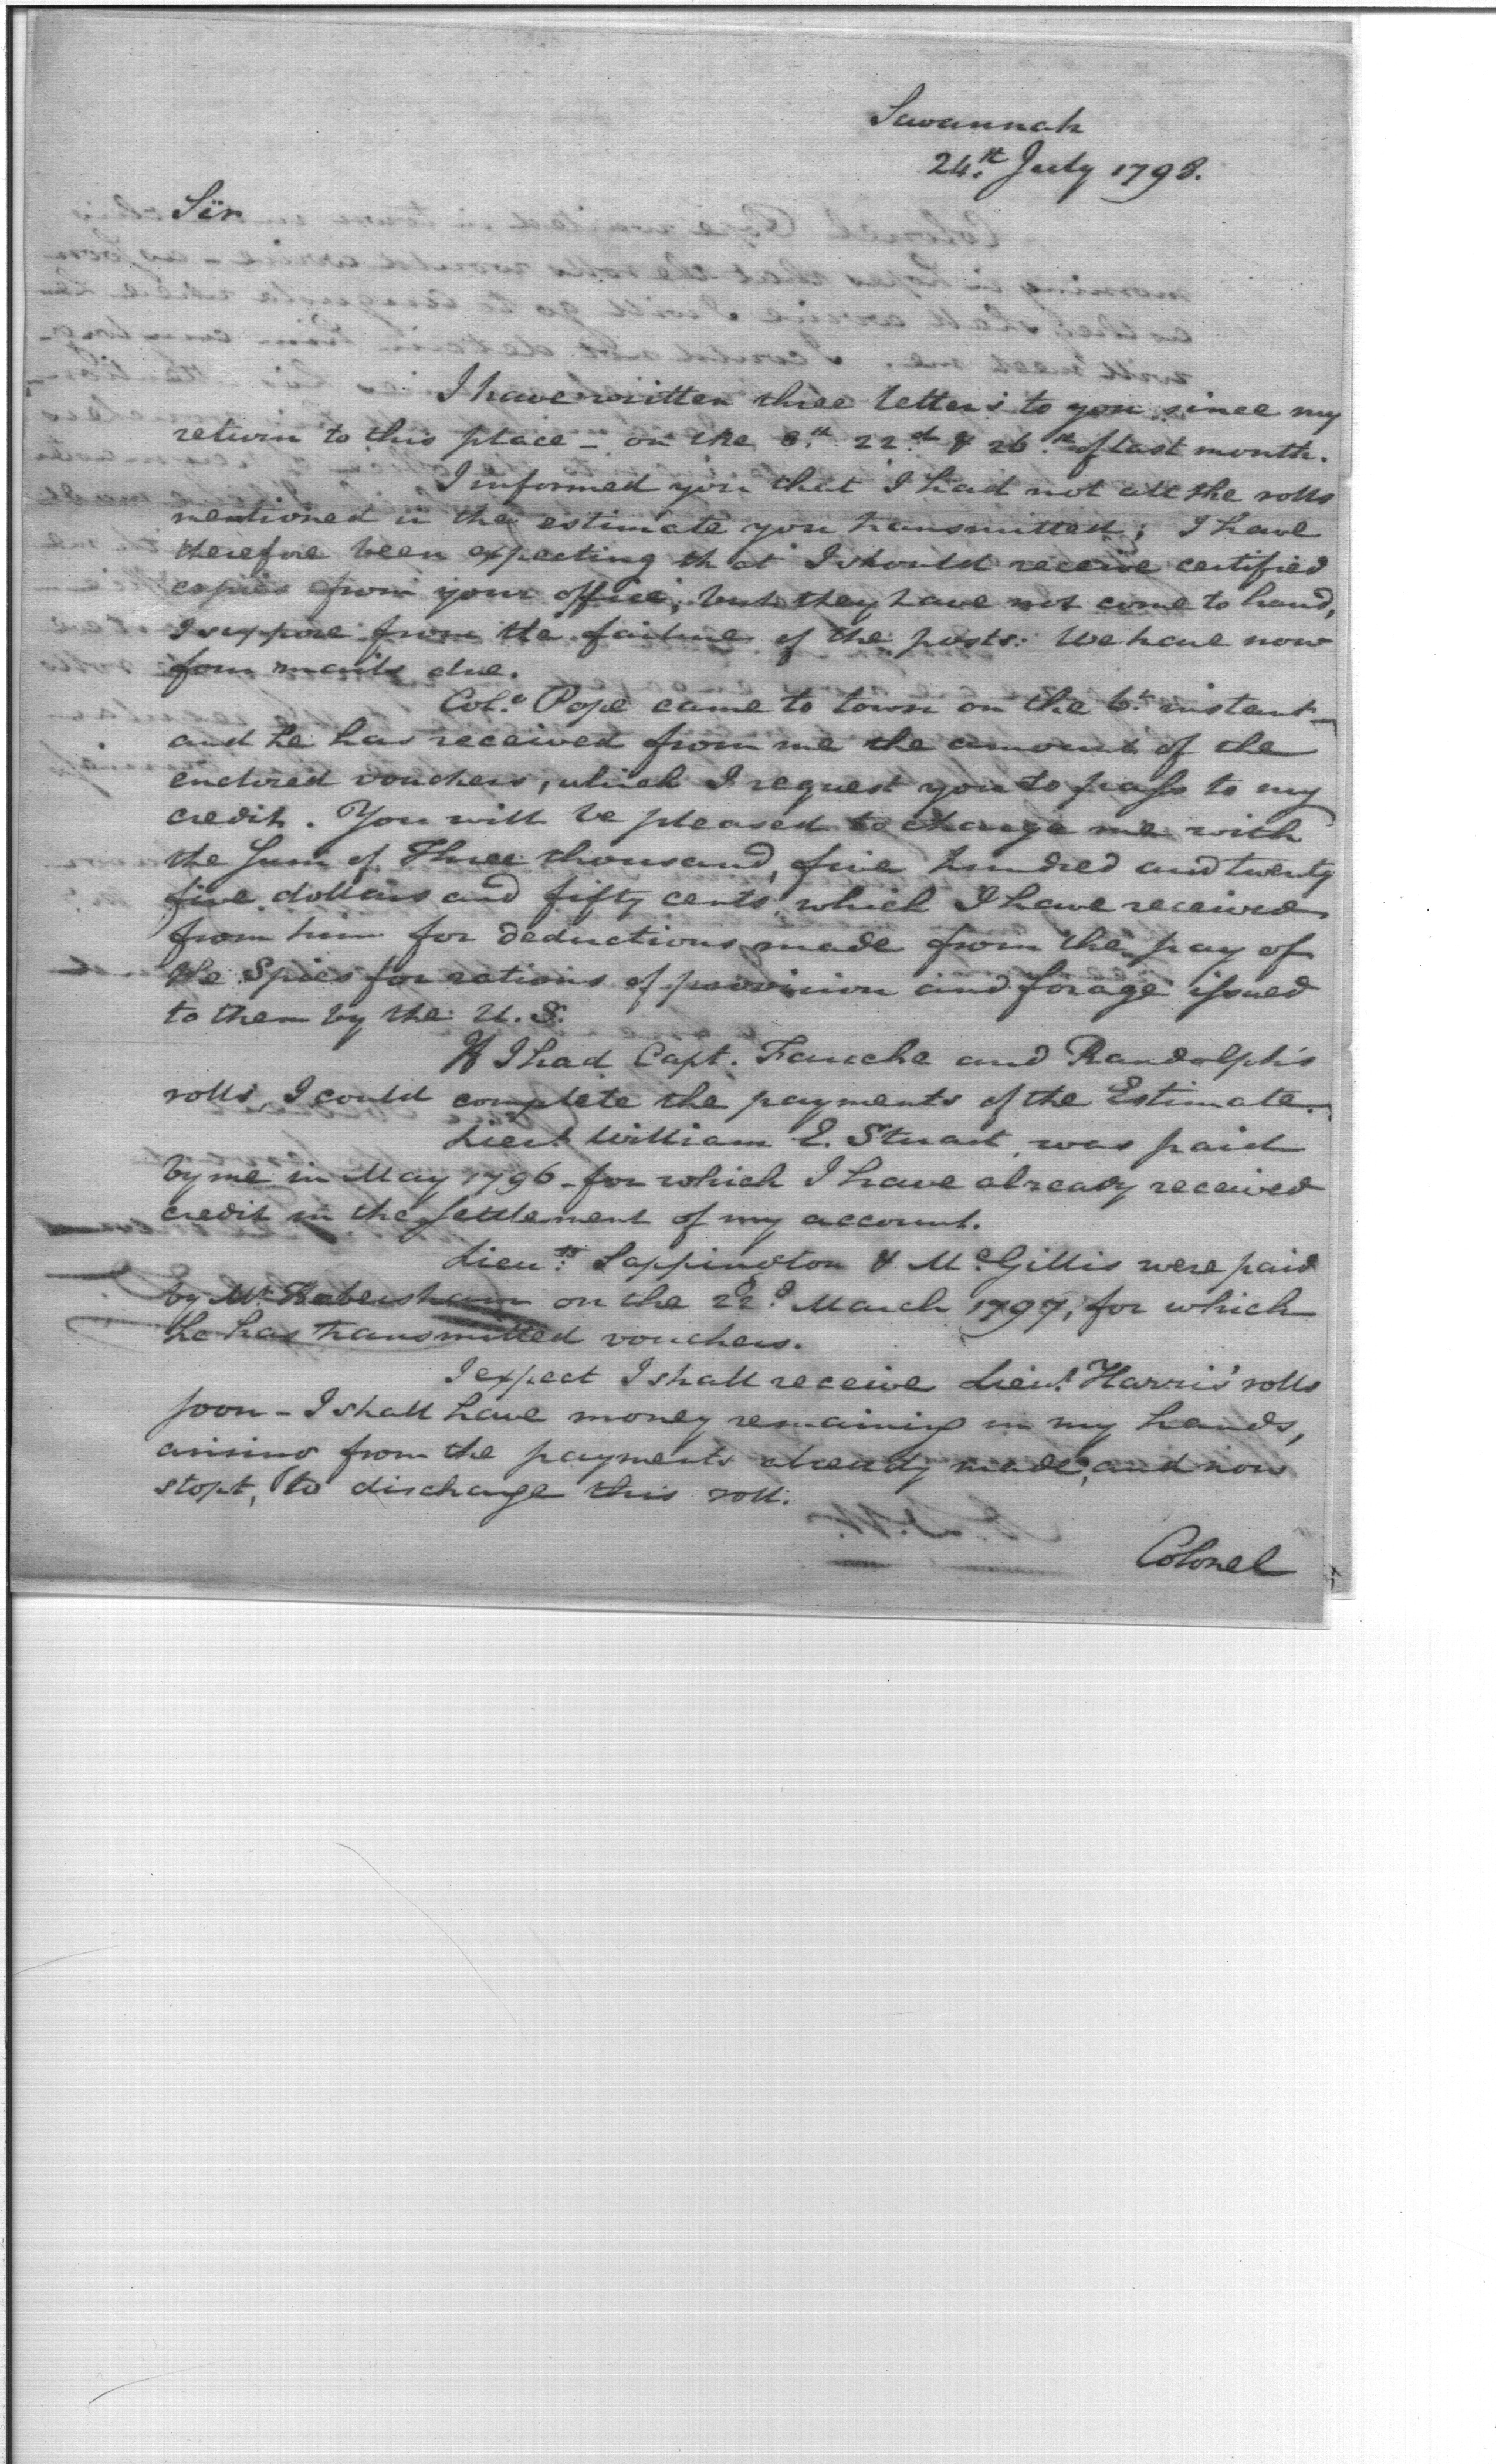 Savannah
24.th July 1798.
Sir
I have written three letters to you since my
return to this place - on the 8.th 22.d & 26.th of last month.
I informed you that I had not all the rolls
mentioned in the estimate you transmitted; I have
therefore been expecting that I should receive certified
copies from your office; but they have not come to hand,
I suppose from the failure of the posts: We have now
four mails due.
Col.o Pope came to town on the 6.th instant -
and he has received from me the amount of the
enclosed vouchers, which I request you to pass to my
credit. You will be pleased to charge me with
the sum of Three thousand, five hundred and twenty
five dollars and fifty cents, which I have received
from him for deductions made from the pay of
the Spies for rations of provision and forage issued
to them by the U. S.
If I had Capt. Fauche and Randolph's
rolls, I could complete the payments of the Estimate.
Lieut. William E. Stuart, was paid
by me in May 1796 - for which I have already received
credit in the settlement of my account.
Lieu.ts Sappington & Mc.Gillis were paid
by Mr. Habersham on the 22.d March 1797, for which
he has transmitted vouchers.
I expect I shall receive Lieut. Harris' rolls
soon - I shall have money remaining in my hands,
arising from the payments already made, and now
stopt, to discharge this roll.
Colonel